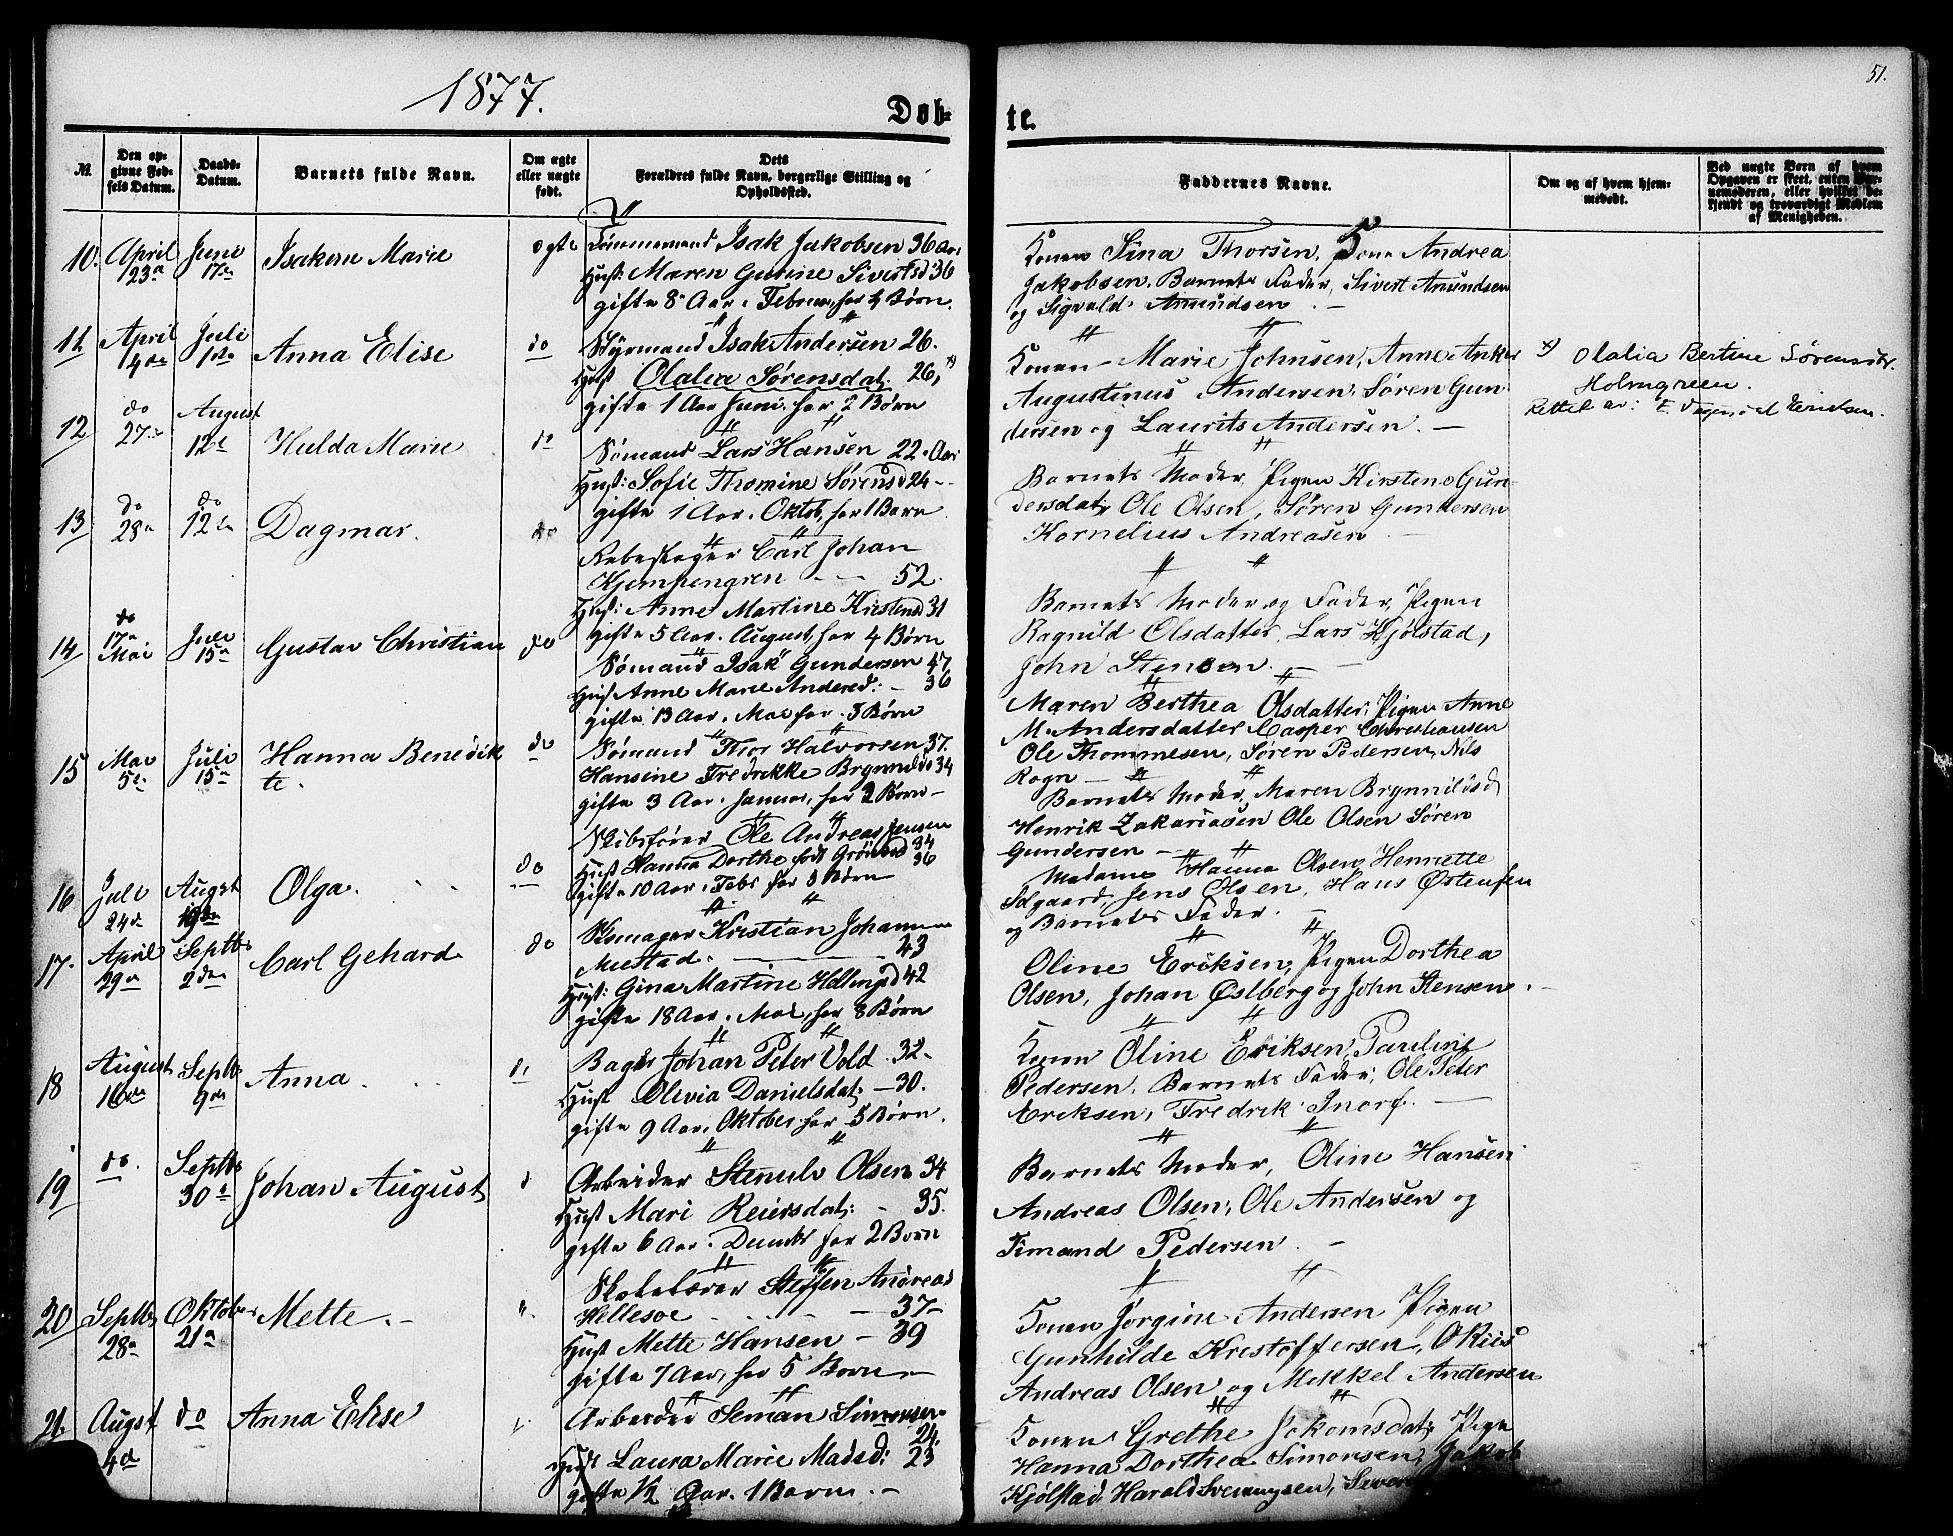 51.
1877.
Døb-
te.
№
Den op-
givne Fød-
sels Datum.
Daabs-
Datum.
Barnets fulde Navn.
Om ægte
eller uægte
født.
Dets
Forældres fulde Navn, borgerlige Stilling og
Opholdssted.
Faddernes Navne.
Om og af hvem hjem-
medøbt.
Ved uægte Børn af hvem
Opgaven er skeet, enten Bar-
nemoderen, eller hvilket be-
kjendt og troværdigt Medlem
af Menigheden.
10. April 23de Juni 17de Isakine Marie ægte
Tømmermand Isak Jakobsen 36 Aar
Hust: Maren Gurine Sivertsd 36
gifte 8 Aar. Februar, har 4 Børn.
Konen Sina Thorsen, Kone Andrea
Jakobsen. Barnets Fader, Sivert Amundsen
og Sigvald Amundsen
11 April 14de Juli 1ste Anna Elise do
Styrmand Isak Andersen 26.
Hust Olalia Sørensdat: 26, x)
gifte 1 Aar Juni, har 2 Børn
Konen Marie Johnsen, Anne Anker
Augustinus Andersen, Søren Gun-
dersen og Laurits Andersen.
x) Olalia Bertine Sørensdtr.
Holmgreen.
Rettet av:
12 do 27de August 12te Hulda Marie do
Sømand Lars Hansen 22. Aar
Hust: Sofie Thomine Sørensd 24
gifte 1 Aar. Oktob, har 1 Barn
Barnets Moder, Pigen Kirstine Gun-
dersdat, Ole Olsen, Søren Gundersen
Kornelius Andreasen
13 do 28de do 12te Dagmar. do
Rebslager Carl Johan
Kjempengren 52.
Hust: Anne Martine Kirstensd 31
gifte 5 Aar. August, har 4 Børn
Barnets Moder og Fader, Pigen
Ragnild Olsdatter, Lars Kjølstad,
John Stensen.
14 do 17de Mai Juli 15de Gustav Christian do
Sømand Isak Gundersen 47
Hust Anne Marie Andersd: 36
gifte 13 Aar. Mai har 5 Børn
Maren Berthea Olsdatter, Pigen Anne
M. Andersdatter Casper Christiansen
Ole Thommesen, Søren Pedersen, Nils
Rogn
15 Mai 5te Juli 15de Hanna Benedik
te. do
Sømand Thor Halvorsen 37.
Hansine Fredrikke Brynnildsd 34
gifte 3 Aar. Januar, har 2 Børn
Barnets Moder, Maren Brynnildsd
Henrik Zakariasen Ole Olsen Søren
Gundersen
16 Juli 24de August Olga. do
Skibsfører Ole Andreas Jensen
34
Hust Hanna Dorthe født 36
gifte 10 Aar. Febr har 3 Børn
Madame Hanna Olsen, Henriette
Jens Olsen, Hans Østensen
og Barnets Fader.
17. April 29de Septbr 2den Carl Gehard do
Skomager Kristian Johannesen
Mustad. 43
Hust: Gina Martine Hellingsd 42
gifte 18 Aar. Mai, har 8 Børn
Oline Eriksen, Pigen Dorthea
Olsen, Johan Østberg og John Stensen.
18 August 16de Septbr 9de Anna
Bager Johan Peter Vold. 32
Hust Olivia Danielsdat: 30.
gifte 9 Aar. Oktober har 5 Børn.
Konen Oline Eriksen, Pauline
Pedersen. Barnets Fader, Ole Peter
Eriksen, Fredrik
19 do. Septbr 30te Johan August
Arbeider Stenulv Olsen 34
Hust Mari Reiersdat: 35.
gifte 6 Aar. Decmbr har 2 Børn
Barnets Moder, Oline Hansen
Andreas Olsen, Ole Andersen og
Timand Pedersen.
20 Septbr 28de Oktober 21de Mette. "
Skolelærer Steffen Andreas
Hellesoe 37
Hust Mette Hansen 39
gifte 7 Aar, har 5 Børn
Konen Jørgine Andersen Pigen
Gunhilde Kristoffersen,
Andreas Olsen og Mikkel Andersen
21. Augst 4de do Anna Elise "
Arbeider Seman Simonsen
24.
Hust Laura Marie Madsd: 23
gifte 1/2 Aar. 1 Barn.
Konen Grethe Jokomsdat: Pigen
Hanna Dorthea Simonsen, Jakob
Kjølstad, Harald